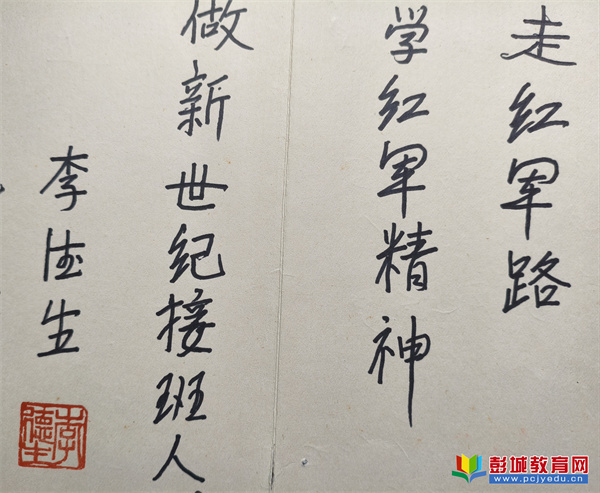 走红军路
学红军精神
做新世纪接班人
李德生
李德生
彭城教育网
www.pcjyedu.cn